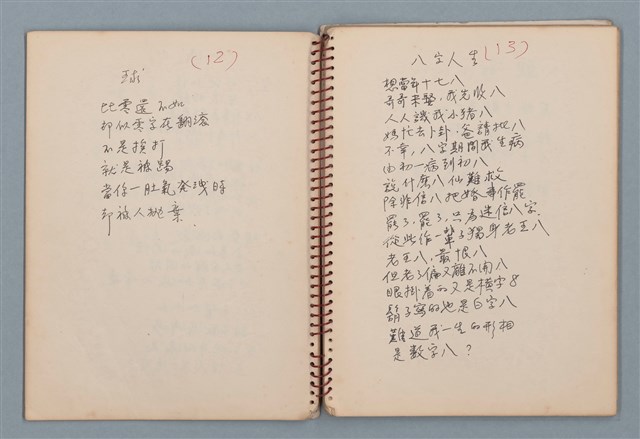 (12)
球
比零還不如
却似零字在翻滾
不是挨打
就是被踢
當你一肚氣發洩時
却被人拋棄
八字人生(13)
想當年十七八
哥哥未娶，我先收八
人人譏我小豬八
媽忙去卜卦，爸請批八
不幸，八字期間我生病
由初一病到初八
說什麼八仙難救
除非信八把婚事作罷
罷了，罷了，只為迷信八字
從此作一輩子獨身老王八
老王八，最恨八
但老了偏又離不開八
眼掛着的又是橫字8
鬍子寫的也是白字八
難道我一生的形相
是數字八？